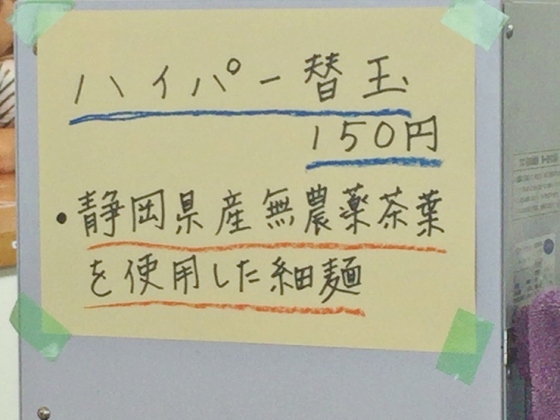 ハイパー替玉
150円
・静岡県産無農薬茶葉
を使用した細麺